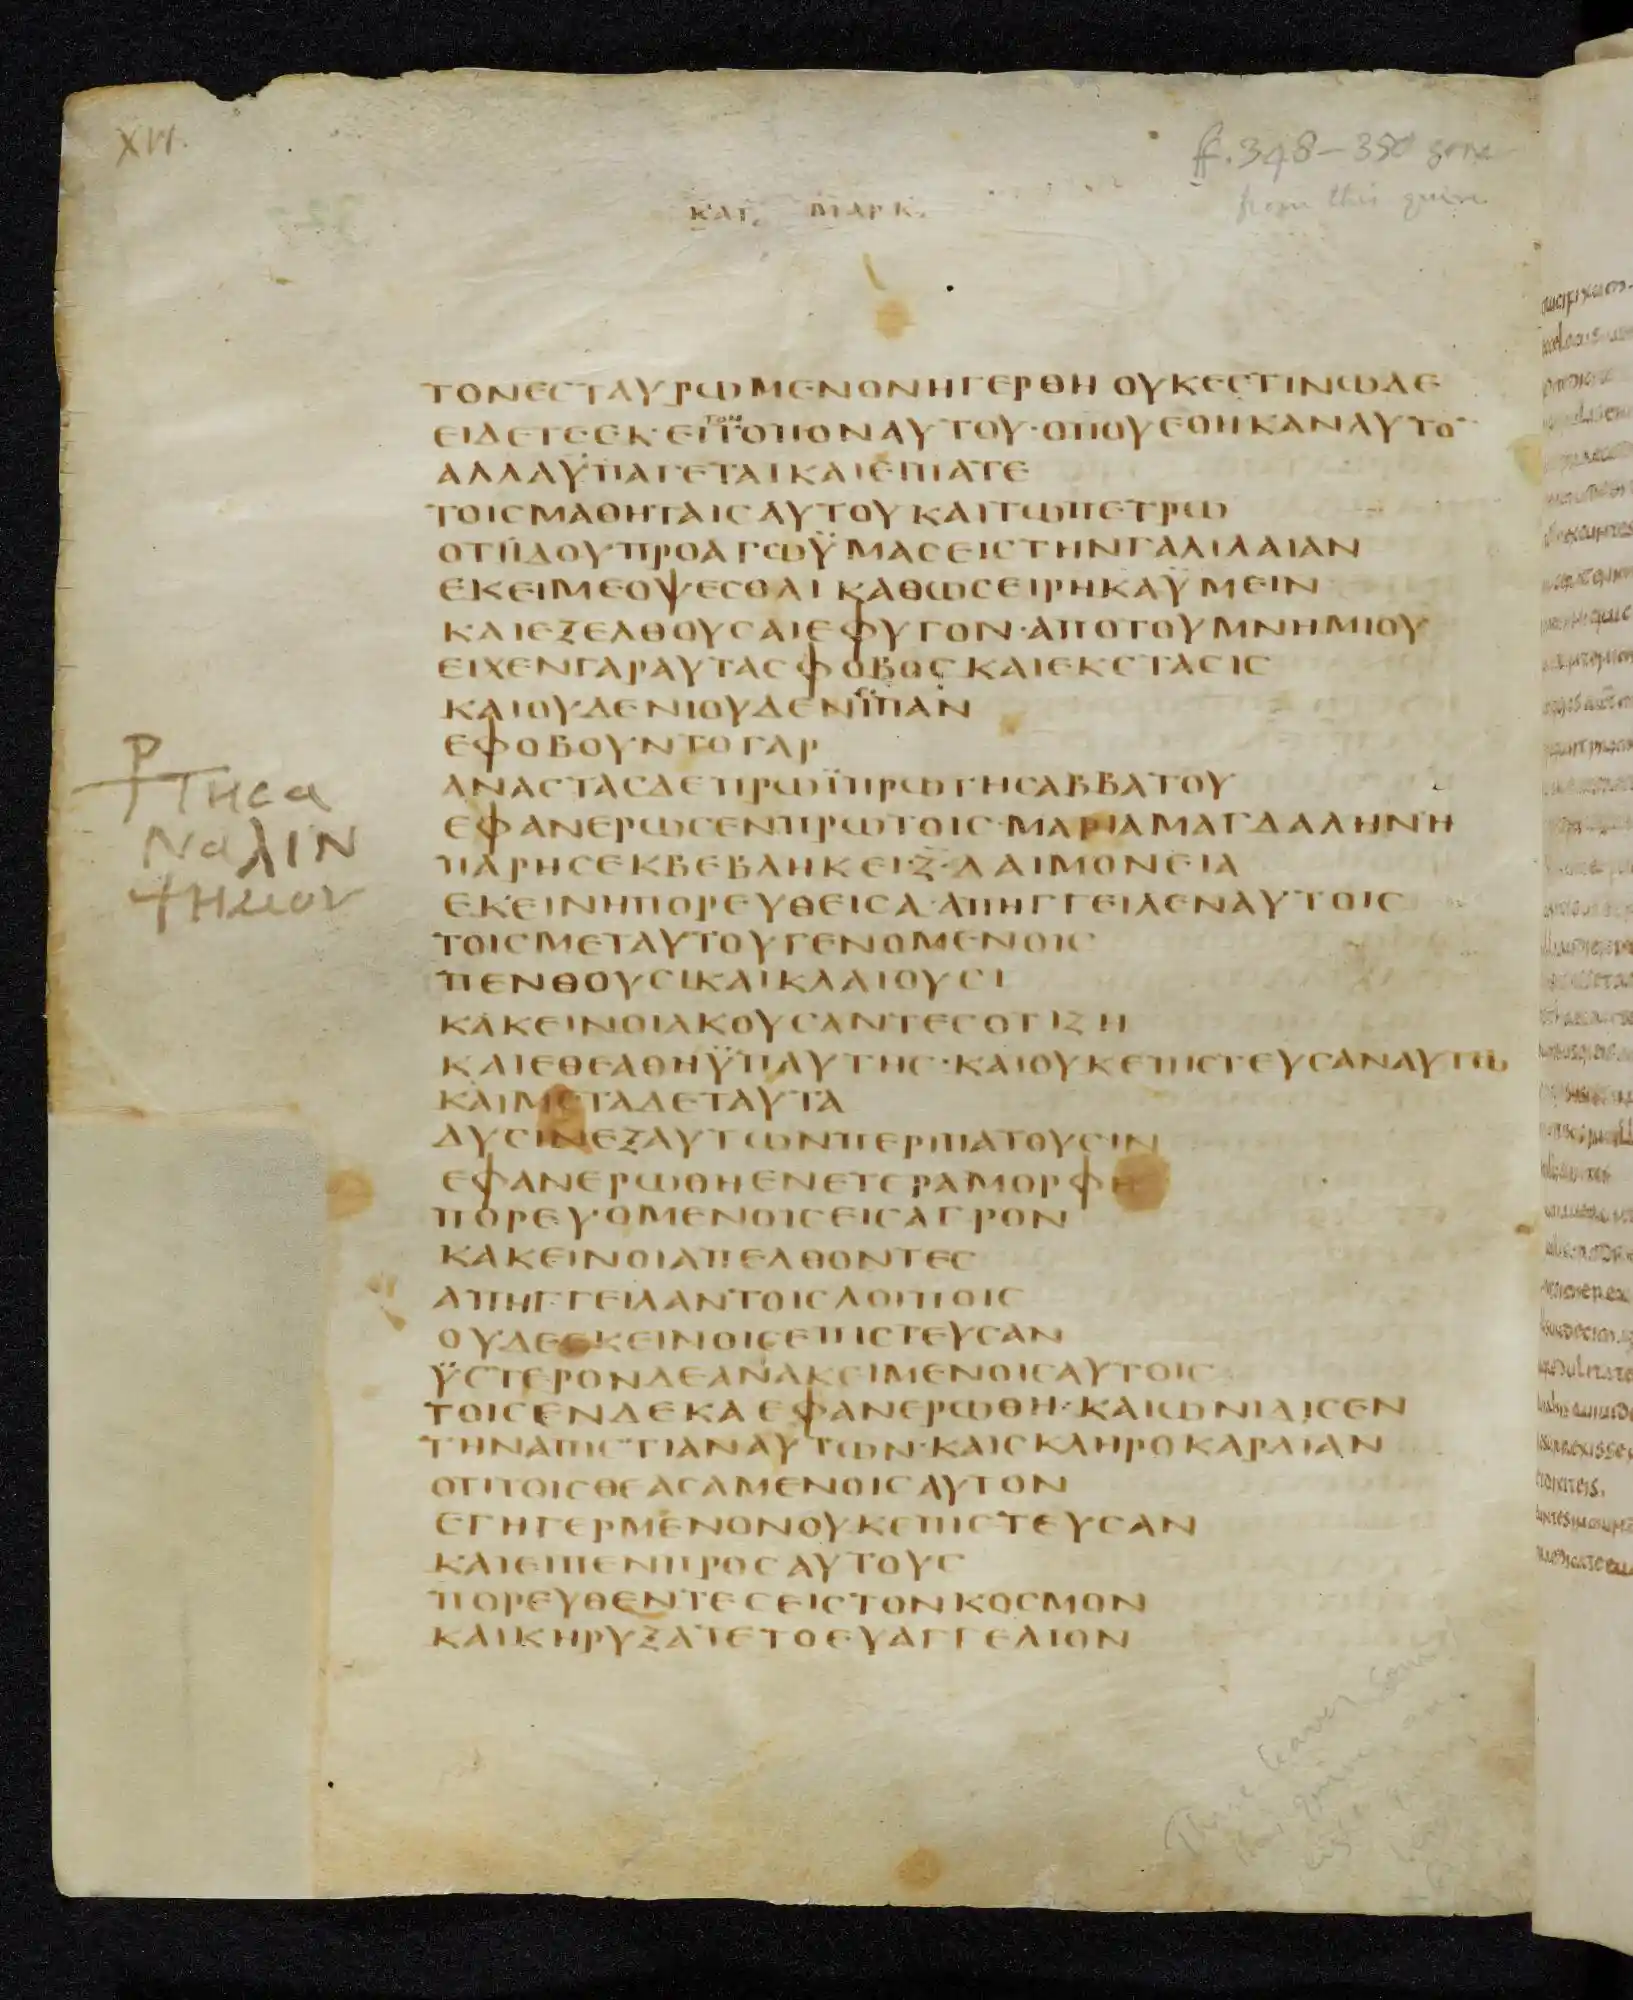 XVI.
ff. 348-350 gone
from this quire
ΚΑΤ. ΜΑΡΚ.
ΤΟΝΕСΤΑΥΡΩΜΕΝΟΝΗΓΕΡΘΗ ΟΥΚΕСΤΙΝΩΔΕ
ΕΙΔΕΤΕΕΚΕΙΤΟΠΟΝΑΥΤΟΥ·ΟΠΟΥΕΘΗΚΑΝΑΥΤΟ¯
ΑΛΛΑΫΠΑΓΕΤΑΙΚΑΙΕΙΠΑΤΕ
ΤΟΙСΜΑΘΗΤΑΙСΑΥΤΟΥΚΑΙΤΩΠΕΤΡΩ
ΟΤΙΪΔΟΥΠΡΟΑΓΩΫΜΑСΕΙСΤΗΝΓΑΛΙΛΑΙΑΝ
ΕΚΕΙΜΕΟΨΕСΘΑΙ ΚΑΘΩСΕΙΡΗΚΑΫΜΕΙΝ
ΚΑΙΕΞΕΛΘΟΥСΑΙΕΦΥΓΟΝ·ΑΠΟΤΟΥΜΝΗΜΙΟΥ
ΕΙΧΕΝΓΑΡΑΥΤΑСΦΟΒΟСΚΑΙΕΚСΤΑСΙС
ΚΑΙΟΥΔΕΝΙΟΥΔΕΝΪΠΑΝ
ΕΦΟΒΟΥΝΤΟΓΑΡ
ΑΝΑСΤΑСΔΕΠΡΩΪΠΡΩΤΗСΑΒΒΑΤΟΥ
ΕΦΑΝΕΡΩСΕΝΠΡΩΤΟΙС·ΜΑΡΙΑΜΑΓΔΑΛΗΝΗ
ΠΑΡΗСΕΚΒΕΒΛΗΚΕΙ·Ζ·ΔΑΙΜΟΝΕΙΑ
ΕΚΕΙΝΗΠΟΡΕΥΘΕΙСΑ·ΑΠΗΓΓΕΙΛΕΝΑΥΤΟΙС
ΤΟΙСΜΕΤΑΥΤΟΥΓΕΝΟΜΕΝΟΙС
ΠΕΝΘΟΥСΙΚΑΙΚΛΑΙΟΥСΙ
ΚΑΚΕΙΝΟΙΑΚΟΥСΑΝΤΕСΟΤΙΖΗ
ΚΑΙΕΘΕΑΘΗΫΠΑΥΤΗС·ΚΑΙΟΥΚΕΠΙСΤΕΥСΑΝΑΥΤΩ
ΚΑΙΜΕΤΑΔΕΤΑΥΤΑ
ΔΥСΙΝΕΞΑΥΤΩΝΠΕΡΙΠΑΤΟΥСΙΝ
ΕΦΑΝΕΡΩΘΗΕΝΕΤΕΡΑΜΟΡΦΗ
ΠΟΡΕΥΟΜΕΝΟΙСΕΙСΑΓΡΟΝ
ΚΑΚΕΙΝΟΙΑΠΕΛΘΟΝΤΕС
ΑΠΗΓΓΕΙΛΑΝΤΟΙСΛΟΙΠΟΙС
ΟΥΔΕΕΚΕΙΝΟΙСΕΠΙСΤΕΥСΑΝ
ΫСΤΕΡΟΝΔΕΑΝΑΚΕΙΜΕΝΟΙСΑΥΤΟΙС
ΤΟΙСΕΝΔΕΚΑΕΦΑΝΕΡΩΘΗ·ΚΑΙΩΝΙΔΙСΕΝ
ΤΗΝΑΠΙСΤΙΑΝΑΥΤΩΝ·ΚΑΙСΚΛΗΡΟΚΑΡΔΙΑΝ
ΟΤΙΤΟΙСΘΕΑСΑΜΕΝΟΙСΑΥΤΟΝ
ΕΓΗΓΕΡΜΕΝΟΝΟΥΚΕΠΙСΤΕΥСΑΝ
ΚΑΙΕΙΠΕΝΠΡΟСΑΥΤΟΥС
ΠΟΡΕΥΘΕΝΤΕСΕΙСΤΟΝΚΟСΜΟΝ
ΚΑΙΚΗΡΥΞΑΤΕΤΟΕΥΑΓΓΕΛΙΟΝ